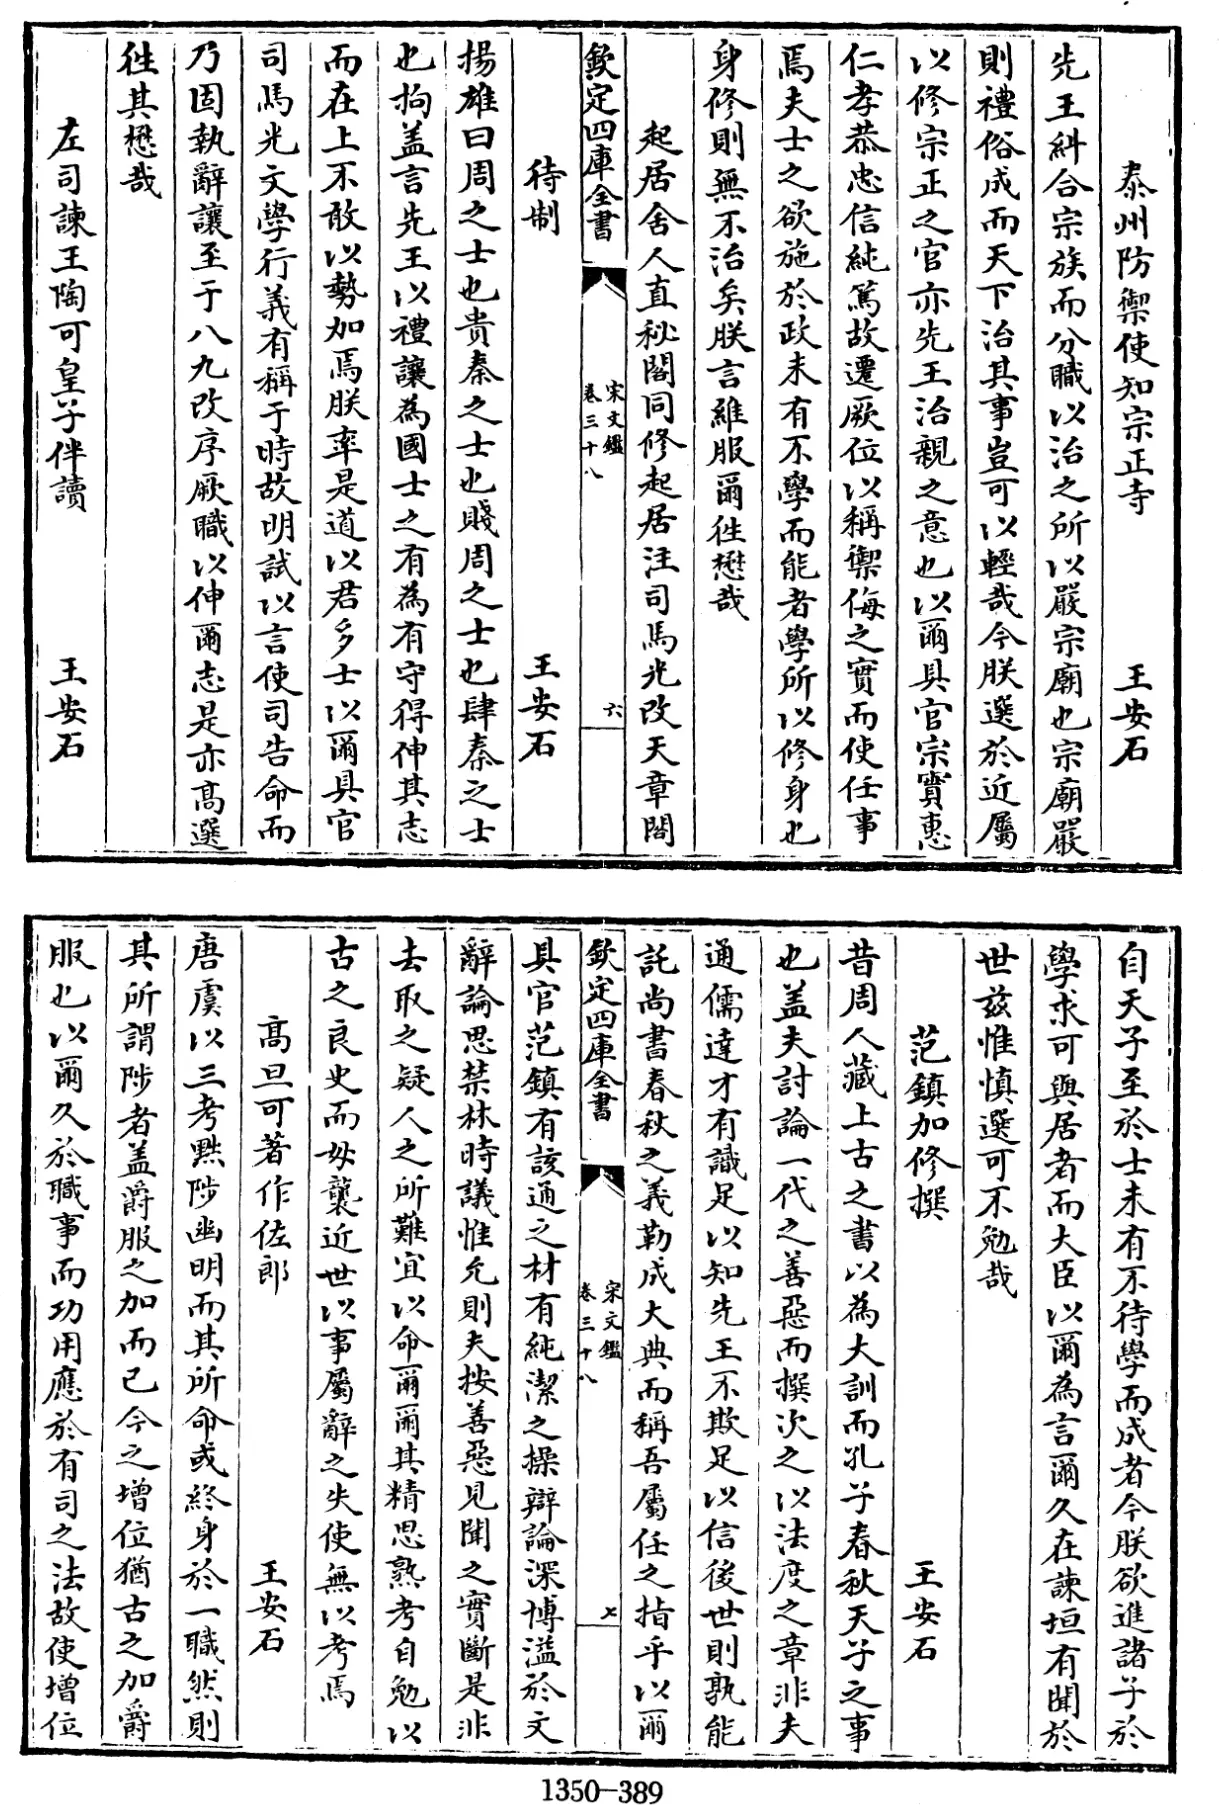 泰州防禦使知宗正寺 王安石
先王糾合宗族而分職以治之所以嚴宗廟也宗廟嚴
則禮俗成而天下治其事豈可以輕哉今朕選於近屬
以修宗正之官亦先王治親之意也以爾具官宗實惠
仁孝恭忠信純篤故遷厥位以稱禦侮之實而使任事
焉夫士之欲施於政未有不學而能者學所以修身也
身修則無不治矣朕言維服爾徃懋哉
起居舍人直秘閣同修起居注司馬光改天章閣
欽定四庫全書 宋文鑑 卷三十八 六
待制 王安石
揚雄曰周之士也貴秦之士也賤周之士也肆秦之士
也拘盖言先王以禮讓為國士之有為有守得伸其志
而在上不敢以勢加焉朕率是道以君多士以爾具官
司馬光文學行義有稱于時故明試以言使司告命而
乃固執辭讓至于八九改序厥職以伸爾志是亦髙選
徃其懋哉
左司諫王陶可皇子伴讀 王安石
自天子至於士未有不待學而成者今朕欲進諸子於
學求可與居者而大臣以爾為言爾久在諫垣有聞於
世兹惟慎選可不勉哉
范鎮加修撰 王安石
昔周人藏上古之書以為大訓而孔子春秋天子之事
也盖夫討論一代之善惡而撰次之以法度之章非夫
通儒達才有識足以知先王不欺足以信後世則孰能
託尚書春秋之義勒成大典而稱吾屬任之指乎以爾
欽定四庫全書 宋文鑑 卷三十八 七
具官范鎮有該通之材有純潔之操辯論深博溢於文
辭論思禁林時議惟允則夫按善惡見聞之實斷是非
去取之疑人之所難宜以命爾爾其精思熟考自勉以
古之良史而毋襲近世以事屬辭之失使無以考焉
髙旦可著作佐郎 王安石
唐虞以三考黜陟幽明而其所命或終身於一職然則
其所謂陟者盖爵服之加而已今之增位猶古之加爵
服也以爾久於職事而功用應於有司之法故使增位
1350-389